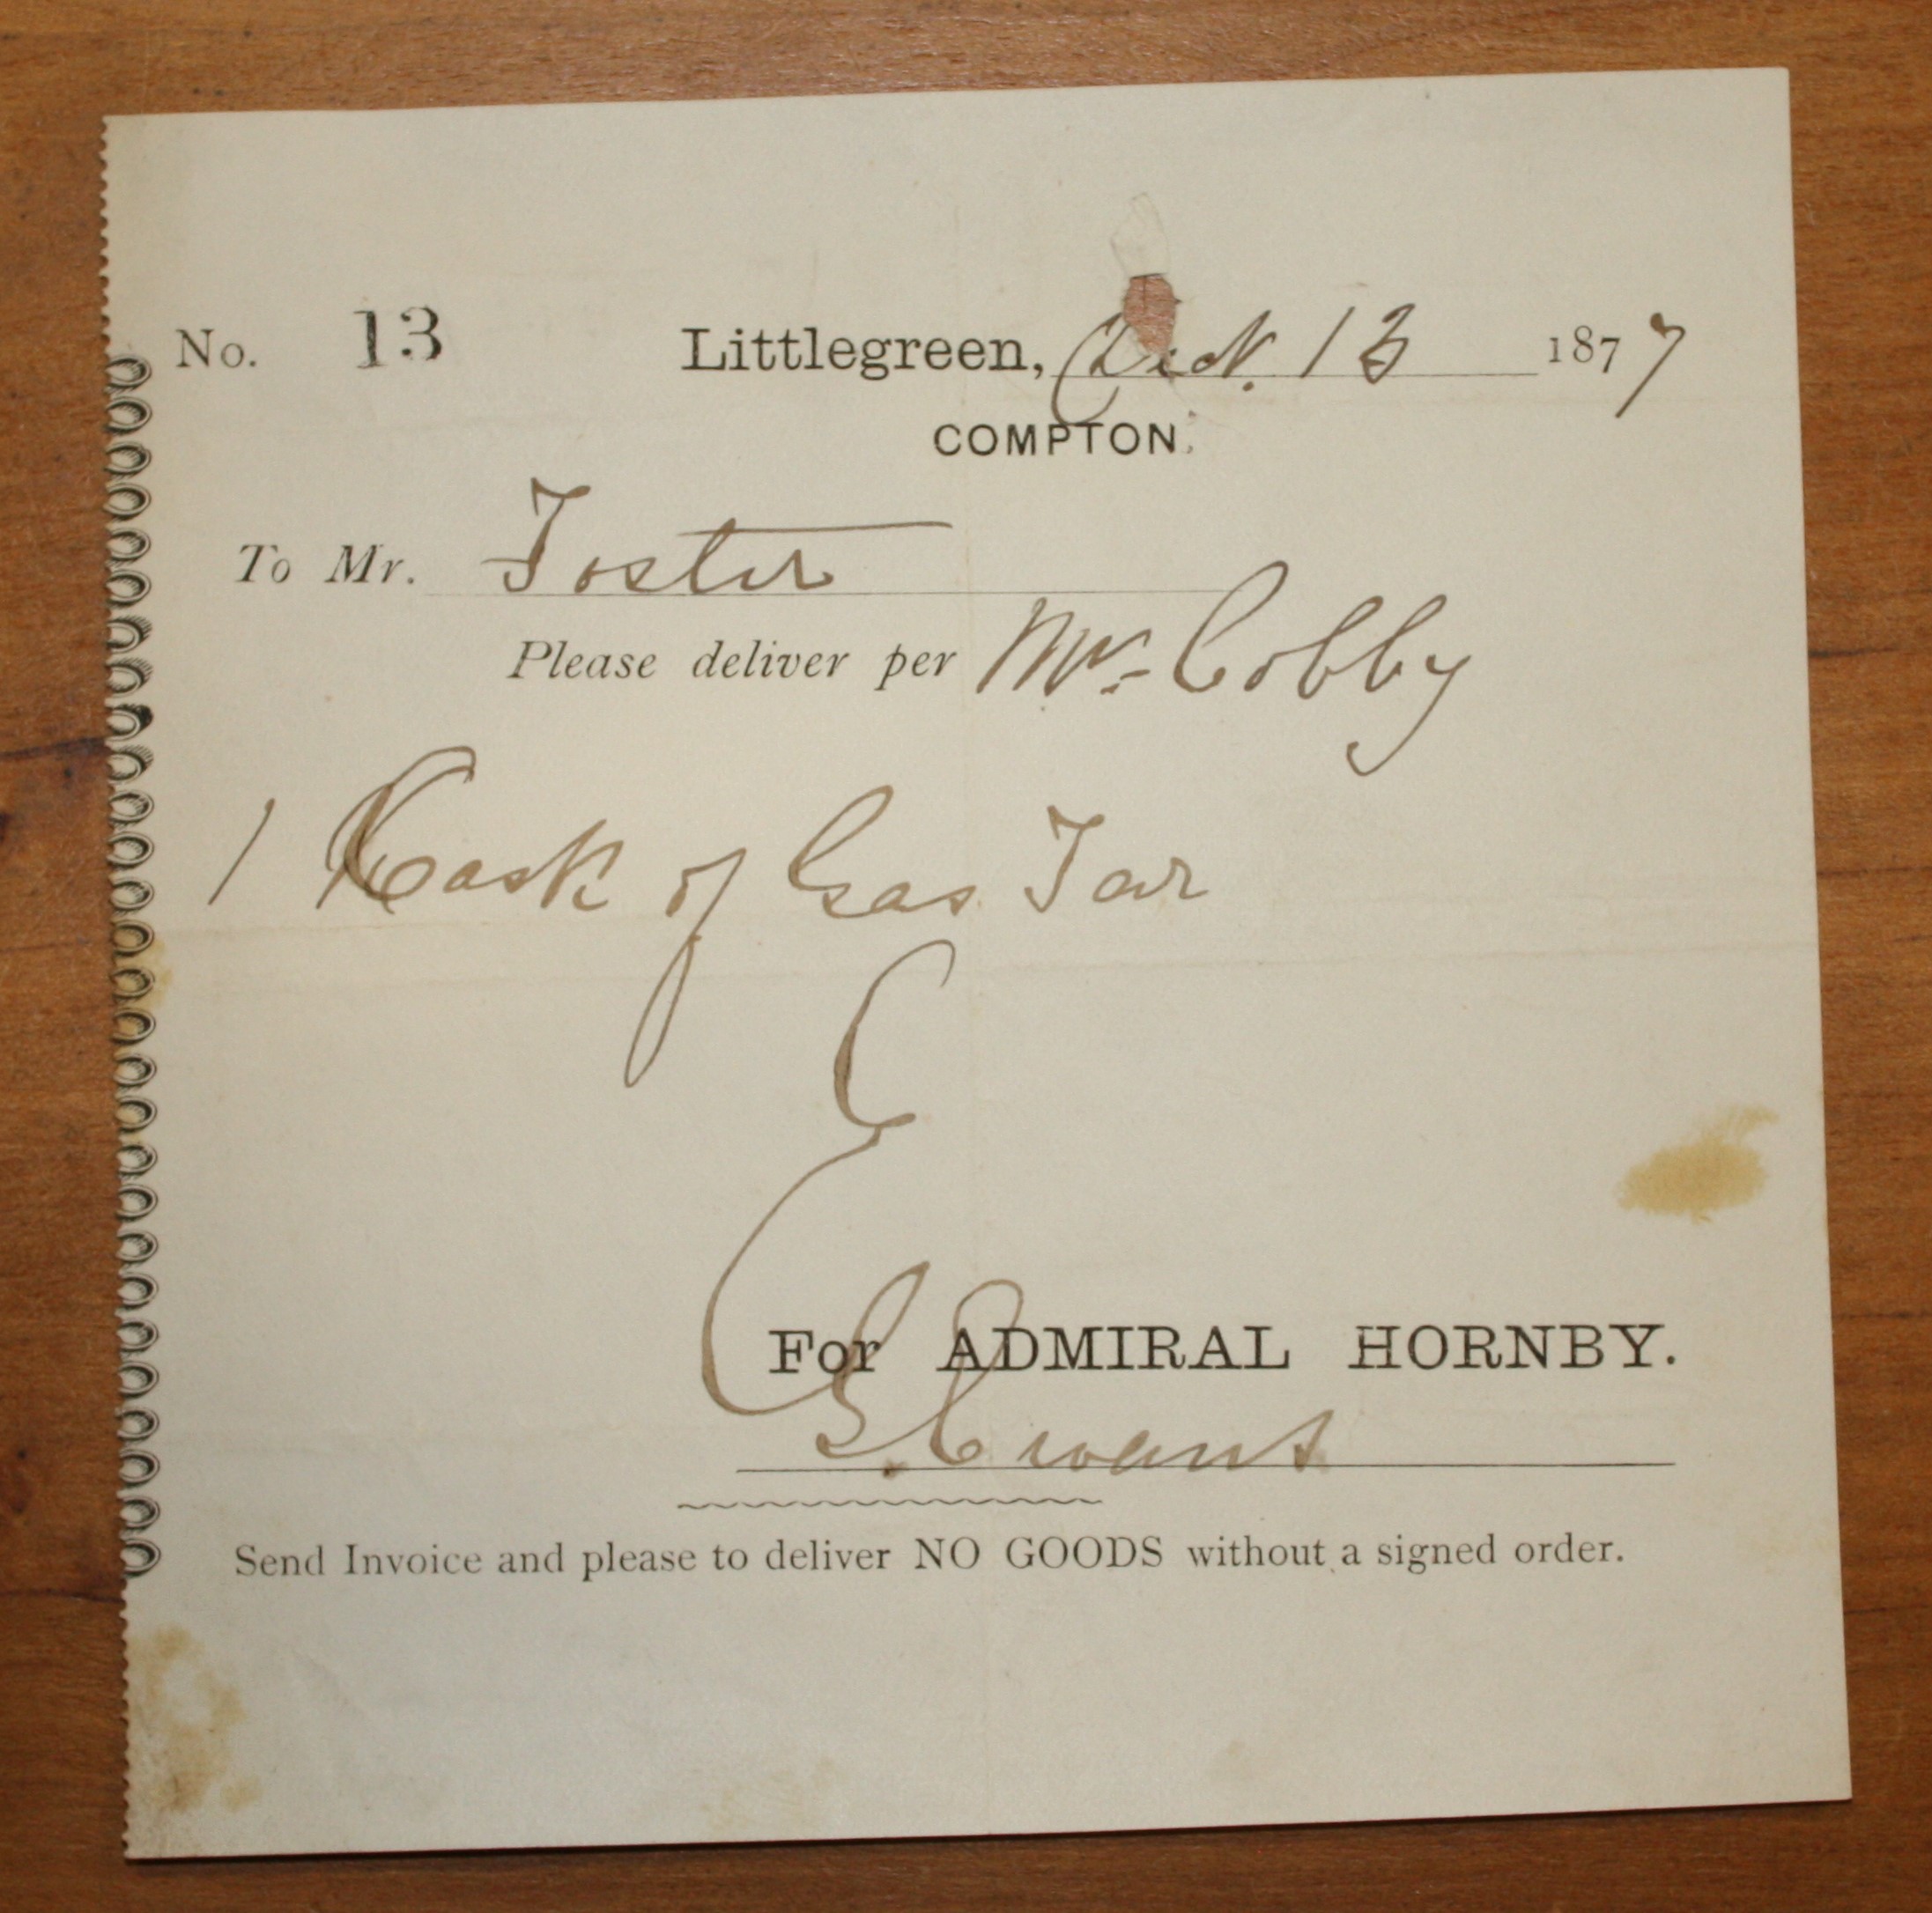 No. 13 Littlegreen, Oct. 13 1877
COMPTON.
To Mr. Foster
Please deliver per Mr. Cobby
1 Cask of Gas Tar
For ADMIRAL HORNBY.
Evans
Send Invoice and please to deliver NO GOODS without a signed order.